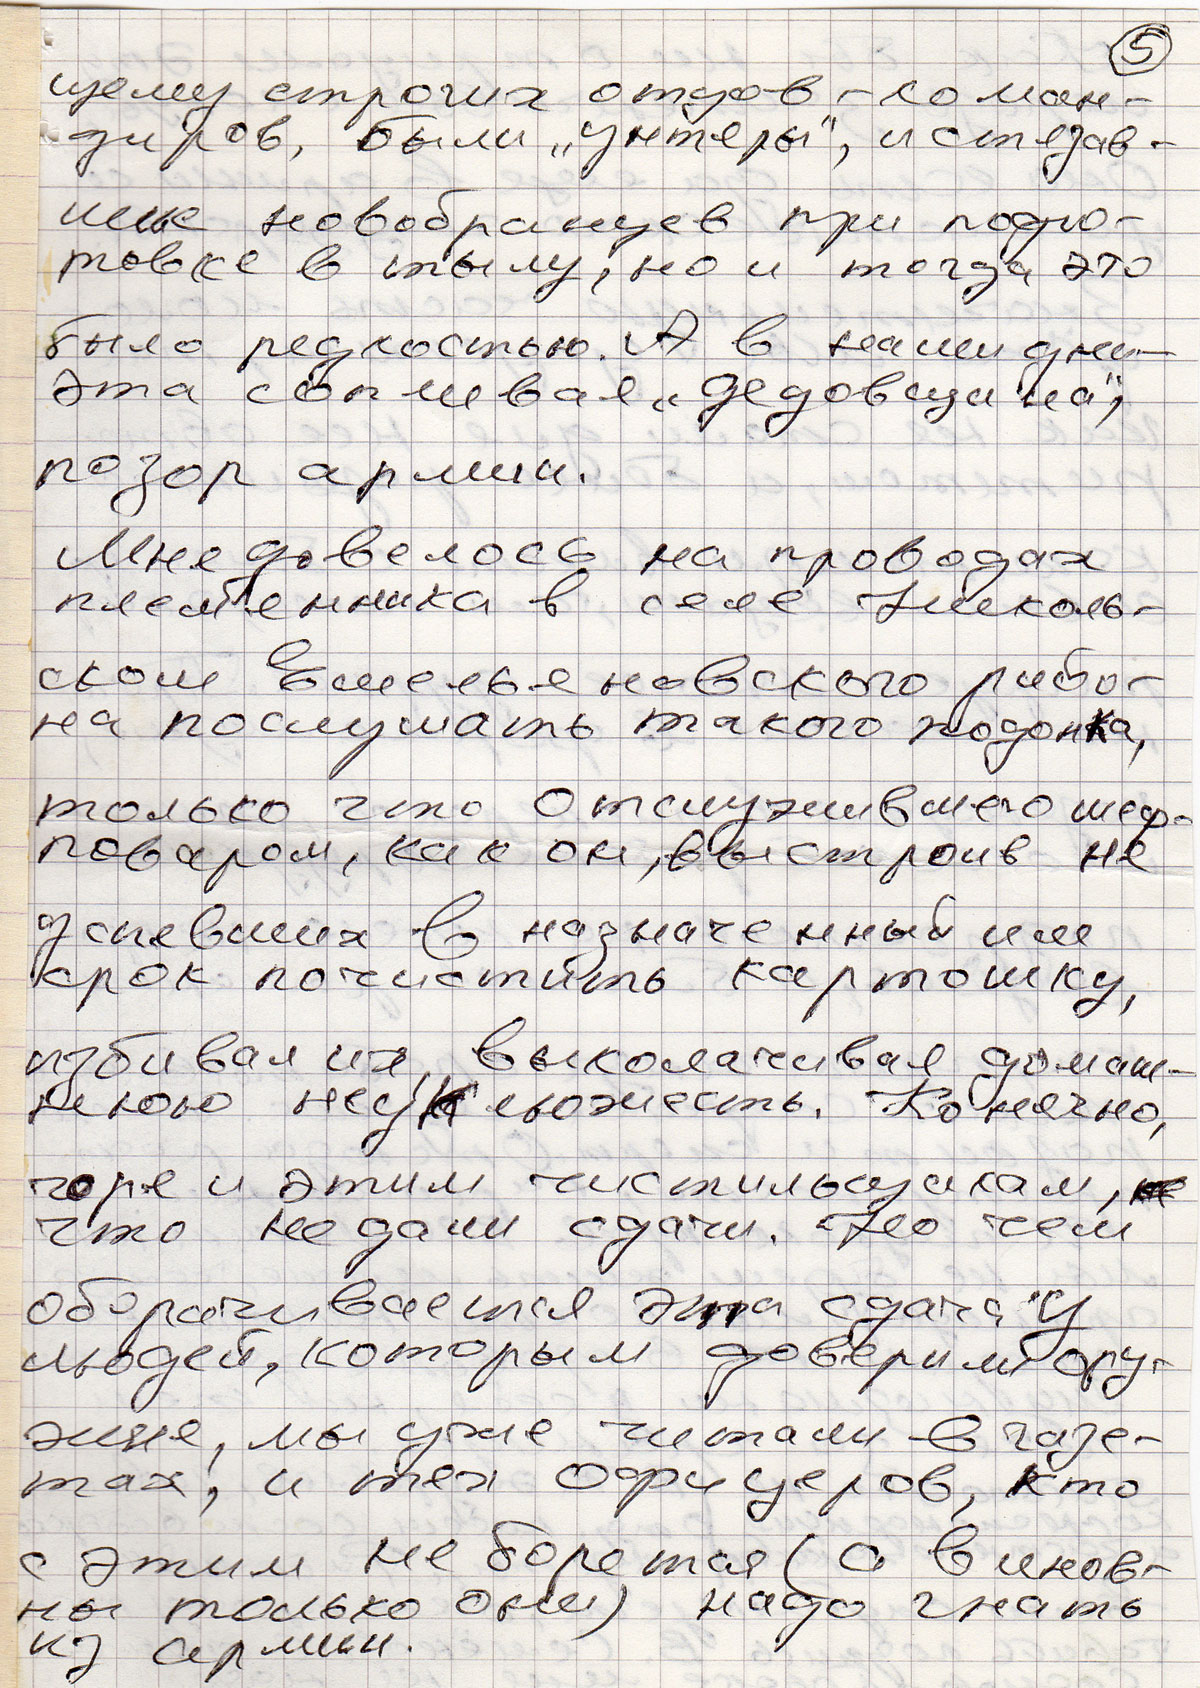 5
щему строгих отцов-коман-
диров, были „унтеры", истязав-
шие новобранцев при подго-
товке в тылу, но и тогда это
было редкостью. А в наши дни –
эта сопливая „дедовщина",
позор армии.
Мне довелось на проводах
племенника в селе Николь-
ском Емельяновского райо-
на послушать такого подонка,
только что отслужившего шеф-
поваром, как он, выстроив не
успевших в назначенный им
срок почистить картошку,
избивал их, выколачивая домаш-
нюю неуклюжесть. Конечно,
горе и этим чистильщикам,
что не дали сдачи. Но чем
оборачивается эта сдача у
людей, которым доверили ору-
жие, мы уже читали в газе-
тах, и тех офицеров, кто
с этим не борется (а винов-
ны только они) надо гнать
из армии.